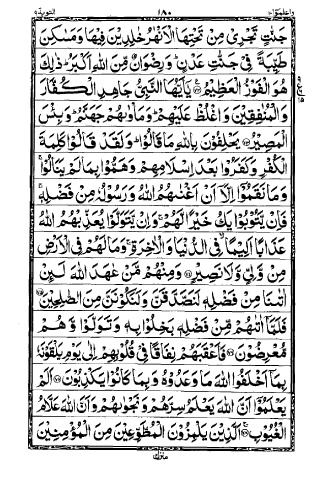 واعلموٓا١٠ ١٨٠ التوبة٩
جَنّٰتٍ تَجْرِيْ مِنْ تَحْتِهَا الْاَنْهٰرُ خٰلِدِيْنَ فِيْهَا وَمَسٰكِنَ
طَيِّبَةً فِيْ جَنّٰتِ عَدْنٍ ؕ وَرِضْوَانٌ مِّنَ اللّٰهِ اَكْبَرُ ؕ ذٰلِكَ
هُوَ الْفَوْزُ الْعَظِيْمُ ۞ يٰۤاَيُّهَا النَّبِيُّ جَاهِدِ الْكُفَّارَ
وَالْمُنٰفِقِيْنَ وَاغْلُظْ عَلَيْهِمْ ؕ وَمَاْوٰىهُمْ جَهَنَّمُ ؕ وَبِئْسَ
الْمَصِيْرُ ۞ يَحْلِفُوْنَ بِاللّٰهِ مَا قَالُوْا ؕ وَلَقَدْ قَالُوْا كَلِمَةَ
الْكُفْرِ وَكَفَرُوْا بَعْدَ اِسْلَامِهِمْ وَهَمُّوْا بِمَا لَمْ يَنَالُوْا ۚ
وَمَا نَقَمُوْۤا اِلَّاۤ اَنْ اَغْنٰىهُمُ اللّٰهُ وَرَسُوْلُهٗ مِنْ فَضْلِهٖ ۚ
فَاِنْ يَّتُوْبُوْا يَكُ خَيْرًا لَّهُمْ ۚ وَاِنْ يَّتَوَلَّوْا يُعَذِّبْهُمُ اللّٰهُ
عَذَابًا اَلِيْمًا ۙ فِي الدُّنْيَا وَالْاٰخِرَةِ ۚ وَمَا لَهُمْ فِي الْاَرْضِ
مِنْ وَّلِيٍّ وَّلَا نَصِيْرٍ ۞ وَمِنْهُمْ مَّنْ عٰهَدَ اللّٰهَ لَئِنْ
اٰتٰىنَا مِنْ فَضْلِهٖ لَنَصَّدَّقَنَّ وَلَنَكُوْنَنَّ مِنَ الصّٰلِحِيْنَ ۞
فَلَمَّاۤ اٰتٰىهُمْ مِّنْ فَضْلِهٖ بَخِلُوْا بِهٖ وَتَوَلَّوْا وَّهُمْ
مُّعْرِضُوْنَ ۞ فَاَعْقَبَهُمْ نِفَاقًا فِيْ قُلُوْبِهِمْ اِلٰى يَوْمِ يَلْقَوْنَهٗ
بِمَاۤ اَخْلَفُوا اللّٰهَ مَا وَعَدُوْهُ وَبِمَا كَانُوْا يَكْذِبُوْنَ ۞ اَلَمْ
يَعْلَمُوْۤا اَنَّ اللّٰهَ يَعْلَمُ سِرَّهُمْ وَنَجْوٰىهُمْ وَاَنَّ اللّٰهَ عَلَّامُ
الْغُيُوْبِ ۞ اَلَّذِيْنَ يَلْمِزُوْنَ الْمُطَّوِّعِيْنَ مِنَ الْمُؤْمِنِيْنَ